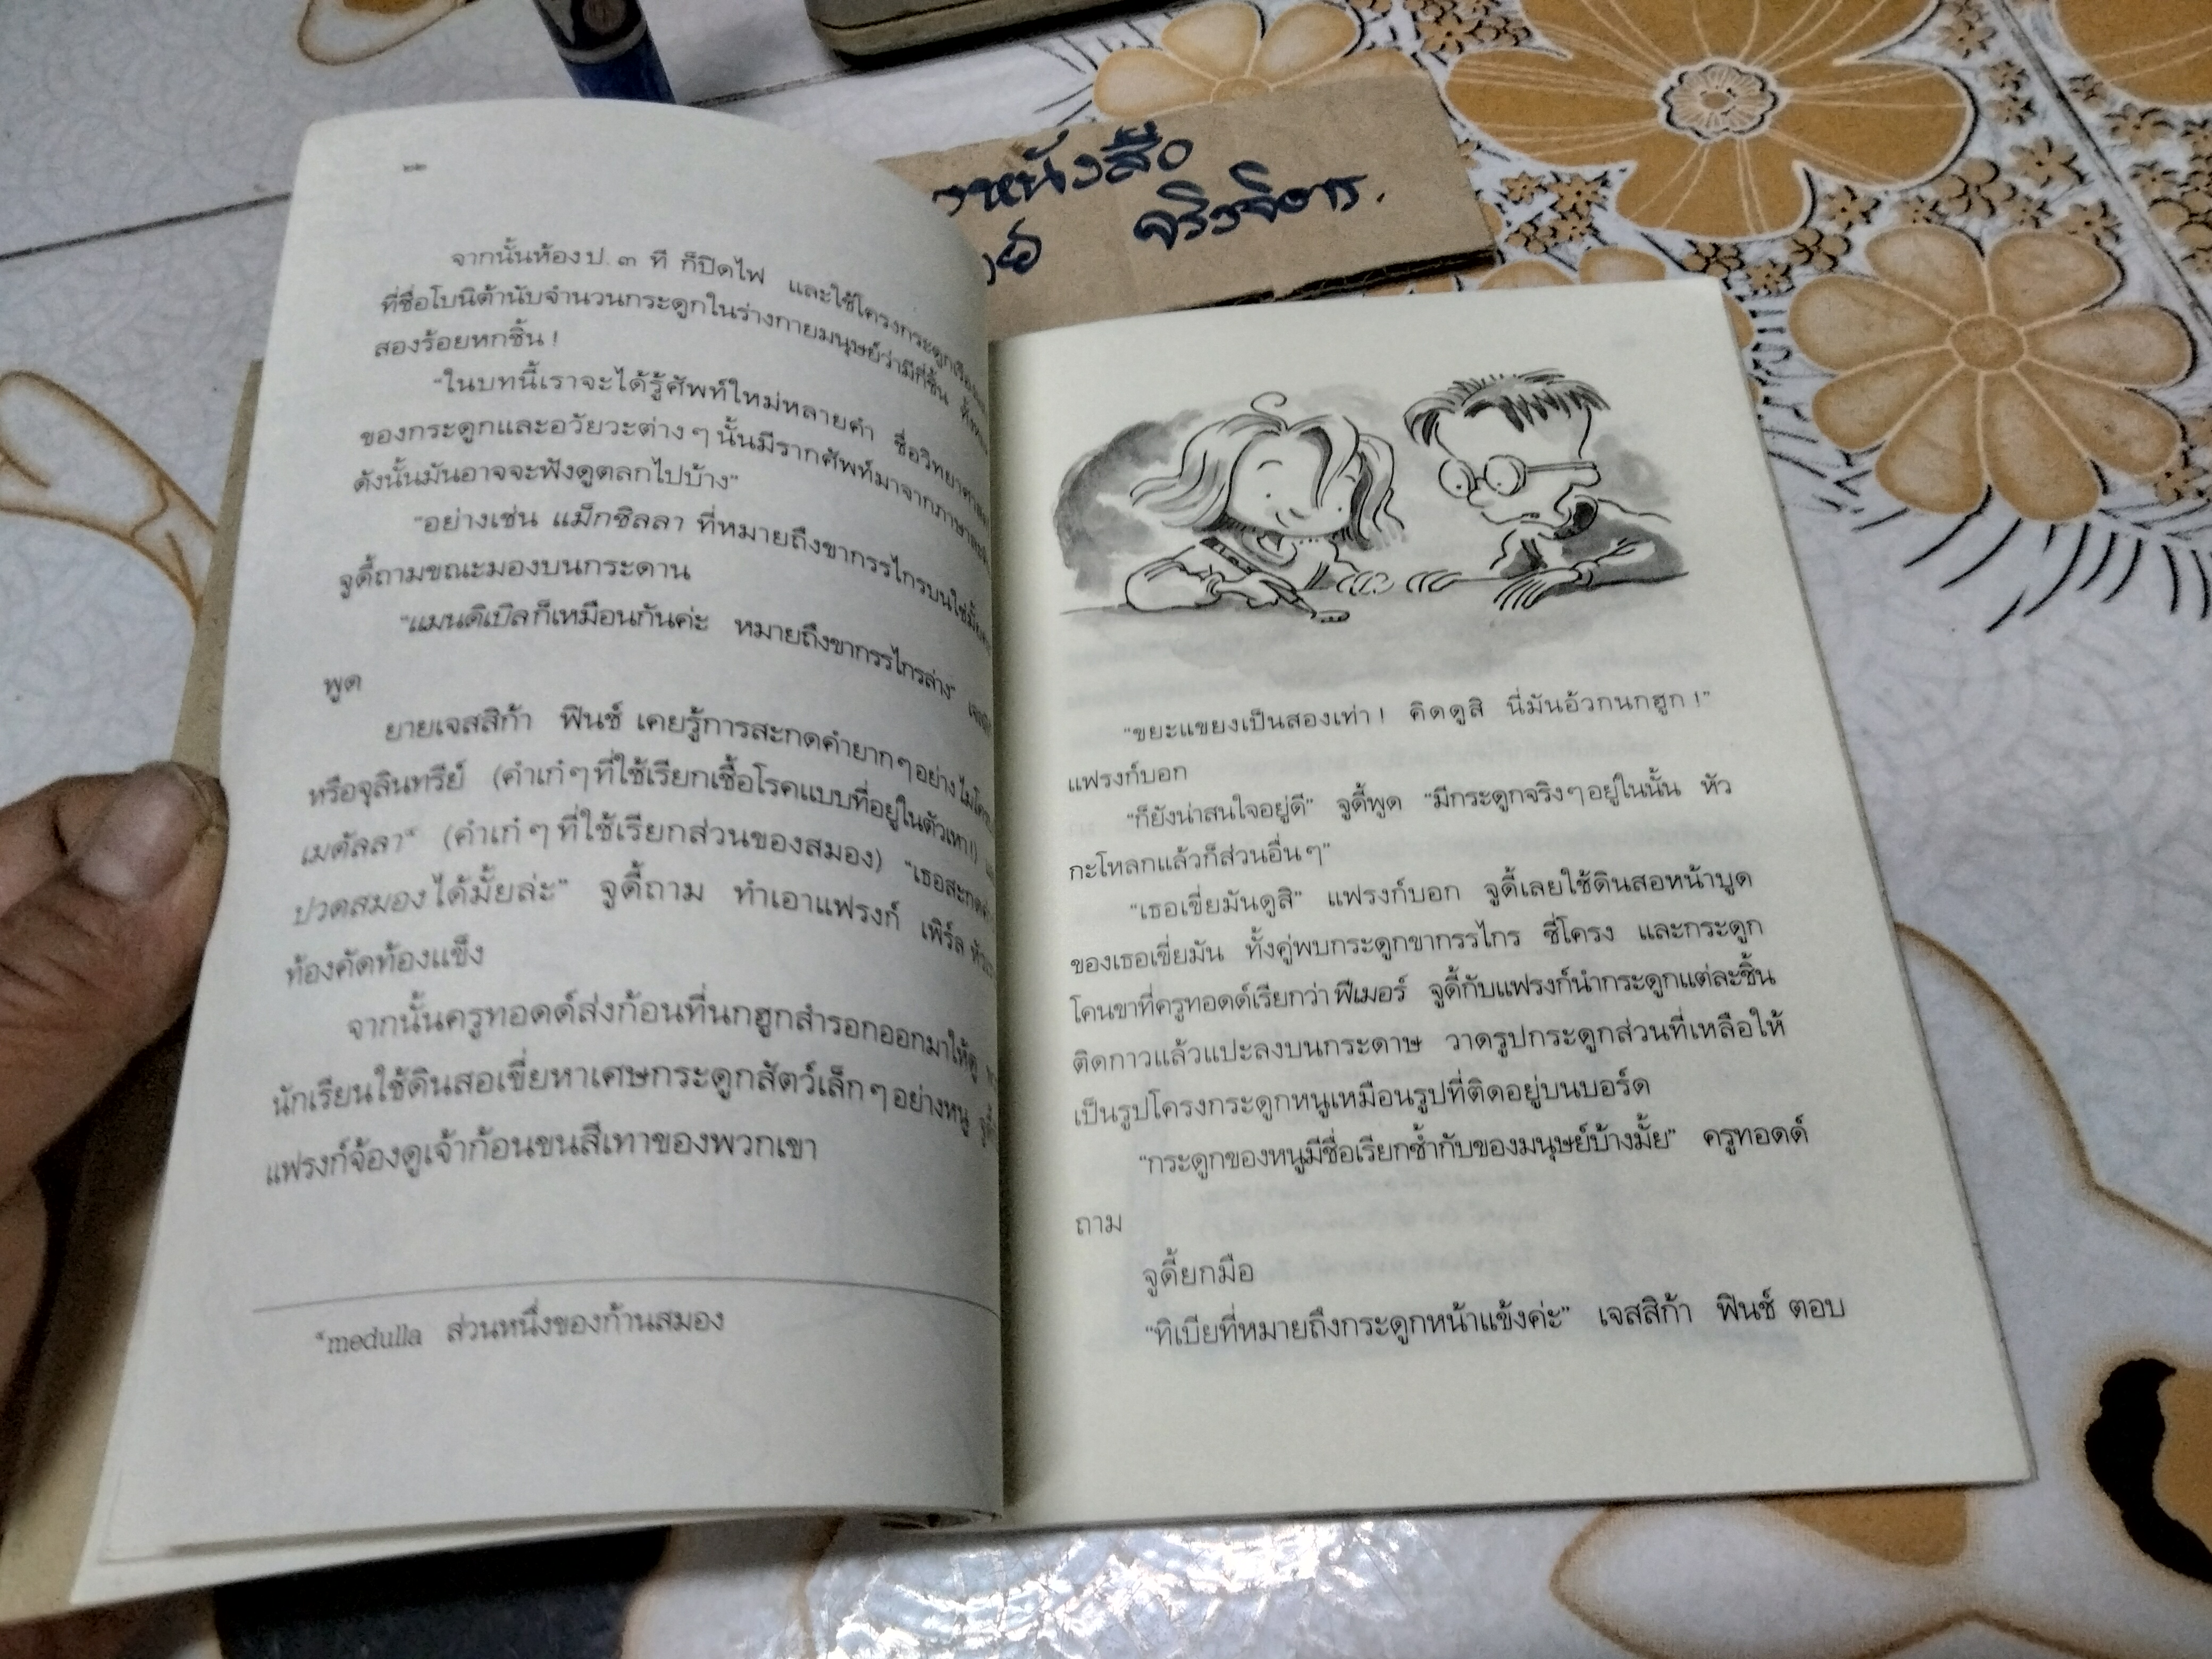 หนังสือ
จริงจิตร.
๒๒
จากนั้นห้อง ป. ๓ ที ก็ปิดไฟ และใช้โครงกระดูกเรือง
ที่ชื่อโบนิต้านับจำนวนกระดูกในร่างกายมนุษย์ว่ามีกี่ชิ้น
สองร้อยหกชิ้น !
“ในบทนี้เราจะได้รู้ศัพท์ใหม่หลายคำ ชื่อวิทยาศา
ของกระดูกและอวัยวะต่าง ๆ นั้นมีรากศัพท์มาจากภาษา
ดังนั้นมันอาจจะฟังดูตลกไปบ้าง”
“อย่างเช่น แม็กซิลลา ที่หมายถึงขากรรไกรบนใช่มั้ย
จูดี้ถามขณะมองบนกระดาน
“แมนดิเบิลก็เหมือนกันค่ะ หมายถึงขากรรไกรล่าง”
พูด
ยายเจสสิก้า ฟินช์ เคยรู้การสะกดคำยาก ๆ อย่าง
หรือจุลินทรีย์ (คำเก๋ ๆ ที่ใช้เรียกเชื้อโรคแบบที่อยู่ในตัวเหา!)
เมดัลลา* (คำเก๋ ๆ ที่ใช้เรียกส่วนของสมอง) “เธอสะกดคำ
ปวดสมอง ได้มั้ยล่ะ” จูดี้ถาม ทำเอาแฟรงก์ เพิร์ล หัว
ท้องคัดท้องแข็ง
จากนั้นครูทอดด์ส่งก้อนที่นกฮูกสำรอกออกมาให้ดู
นักเรียนใช้ดินสอเขี่ยหาเศษกระดูกสัตว์เล็ก ๆ อย่างหนู จูดี้
แฟรงก์จ้องดูเจ้าก้อนขนสีเทาของพวกเขา
*medulla ส่วนหนึ่งของก้านสมอง
“ขยะแขยงเป็นสองเท่า ! คิดดูสิ นี่มันอ้วกนกฮูก !”
แฟรงก์บอก
“ก็ยังน่าสนใจอยู่ดี” จูดี้พูด “มีกระดูกจริง ๆ อยู่ในนั้น หัว
กะโหลกแล้วก็ส่วนอื่น ๆ”
“เธอเขี่ยมันดูสิ” แฟรงก์บอก จูดี้เลยใช้ดินสอหน้าบูด
ของเธอเขี่ยมัน ทั้งคู่พบกระดูกขากรรไกร ซี่โครง และกระดูก
โคนขาที่ครูทอดด์เรียกว่า ฟีเมอร์ จูดี้กับแฟรงก์นำกระดูกแต่ละชิ้น
ติดกาวแล้วแปะลงบนกระดาษ วาดรูปกระดูกส่วนที่เหลือให้
เป็นรูปโครงกระดูกหนูเหมือนรูปที่ติดอยู่บนบอร์ด
“กระดูกของหนูมีชื่อเรียกซ้ำกับของมนุษย์บ้างมั้ย” ครูทอดด์
ถาม
จูดี้ยกมือ
“ทิเบียที่หมายถึงกระดูกหน้าแข้งค่ะ” เจสสิก้า ฟินช์ ตอบ